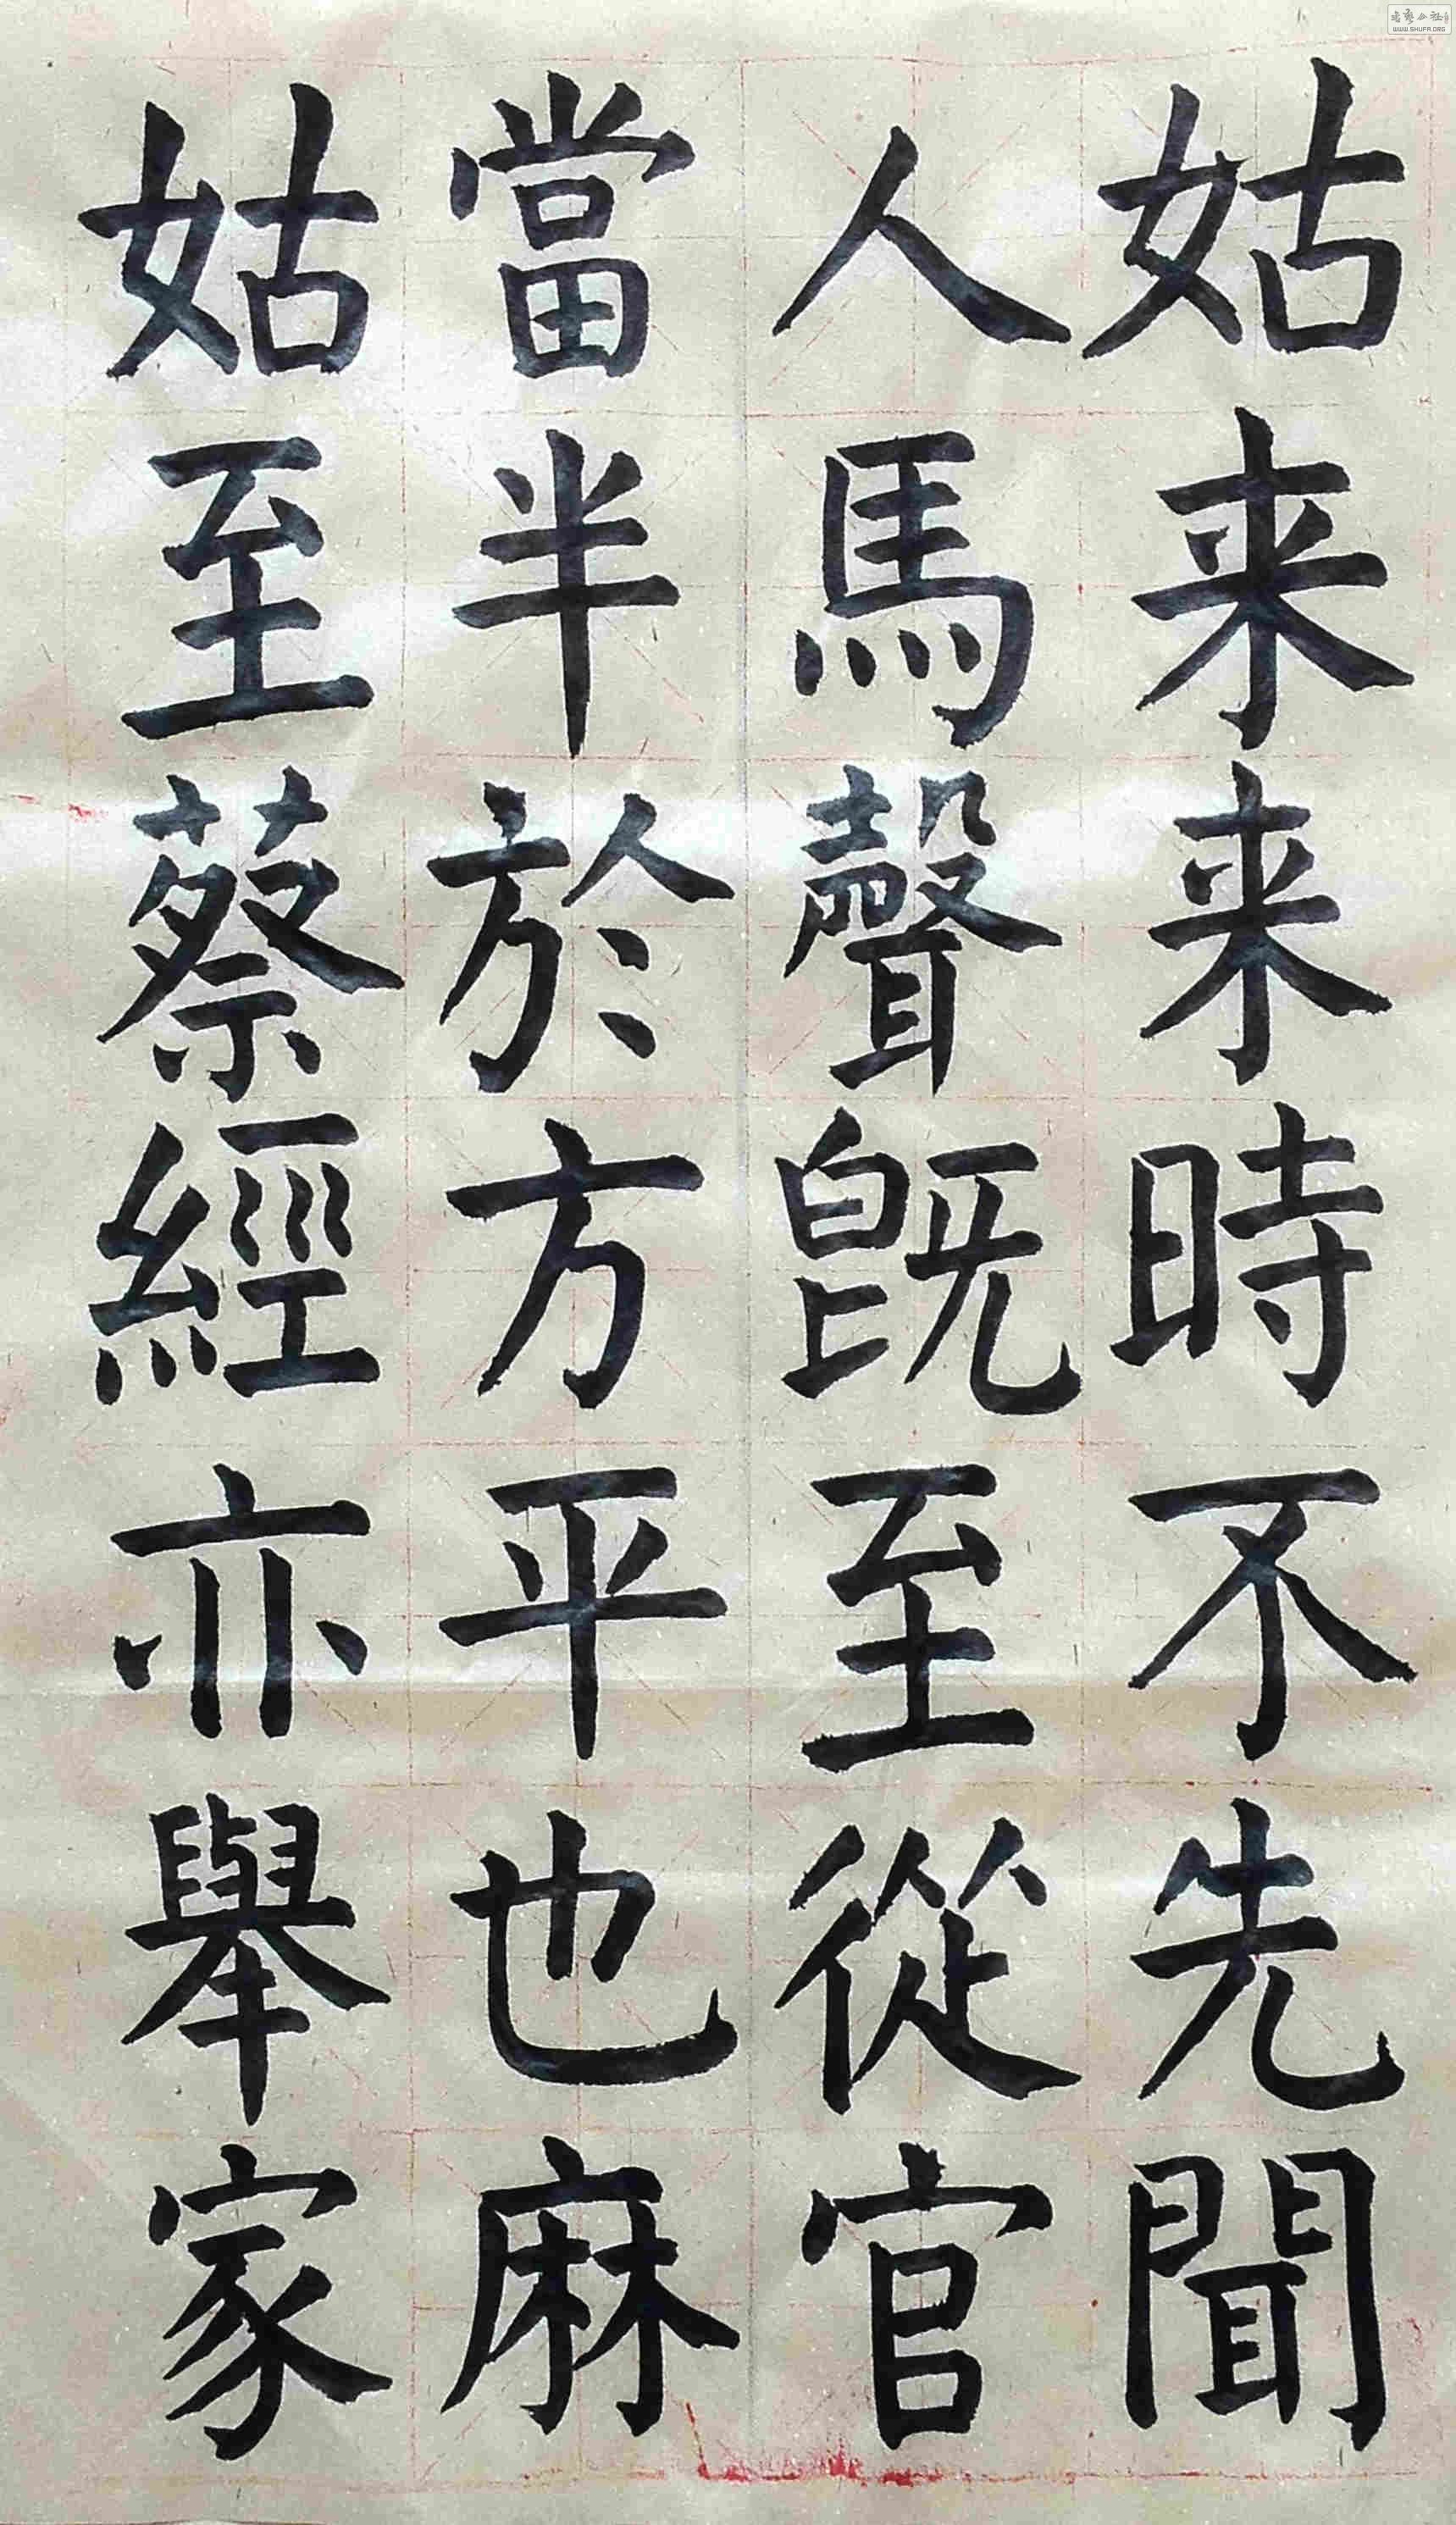 姑来来時不先聞
人馬聲既至從官
當半於方平也麻
姑至蔡經亦舉家
WWW.SHUFA.ORG